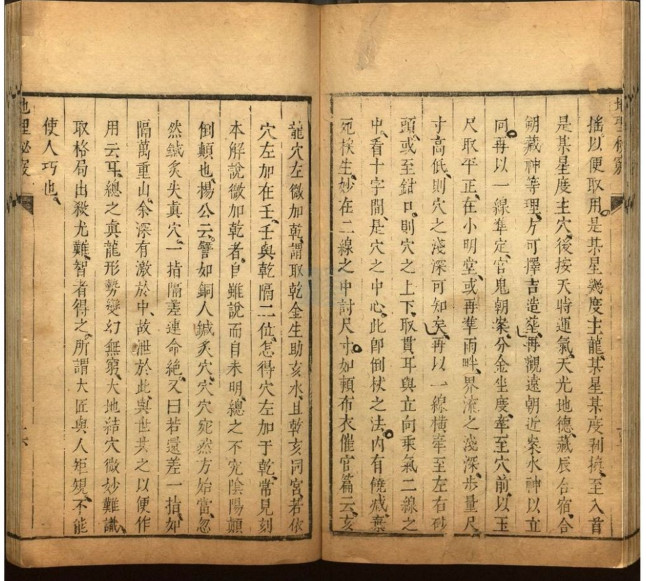 搖以便取用是某星幾度主龍某星某度到
是某星度主穴後按天時運氣天光地德藏辰合宿合
朔藏神等理方可擇吉造塟再觀遠朝近案水神以立
向再以一線準定官鬼朝案分金坐度牽至穴前以玉
尺取平正在小明堂或再莘雨畔界流之淺深步量尺
寸高低則穴之淺深可知矣再以一線橫牽至左右砂
頭或至鉗口則穴之上下取貫耳與立向乘氣二線之
中看十字間是穴之中心此卽倒杖之法內有饒减棄
死挨生妙在二線之中討尺寸如頼布衣催官篇云亥
龍穴左微加乾謂取乾金生助亥水且乾亥同宮若依
穴左加在壬壬與乾隔二位怎得穴左加于乾常見刻
本解說微加乾者自雖說而自未明總之不究陰陽顛
倒顛也楊公云譬如銅人鍼炙穴穴穴宛然方始當忽
然鍼炙失真穴一指隔差連命絶又曰若還差一指如
隔萬重山余深有激於中故泄於此與世共之以便作
用云耳總之真龍形勢變幻無窮大地結穴微妙難識
取格局出殺尤難智者得之所謂大匠與人矩䂓不能
使人巧也
地理秘竅